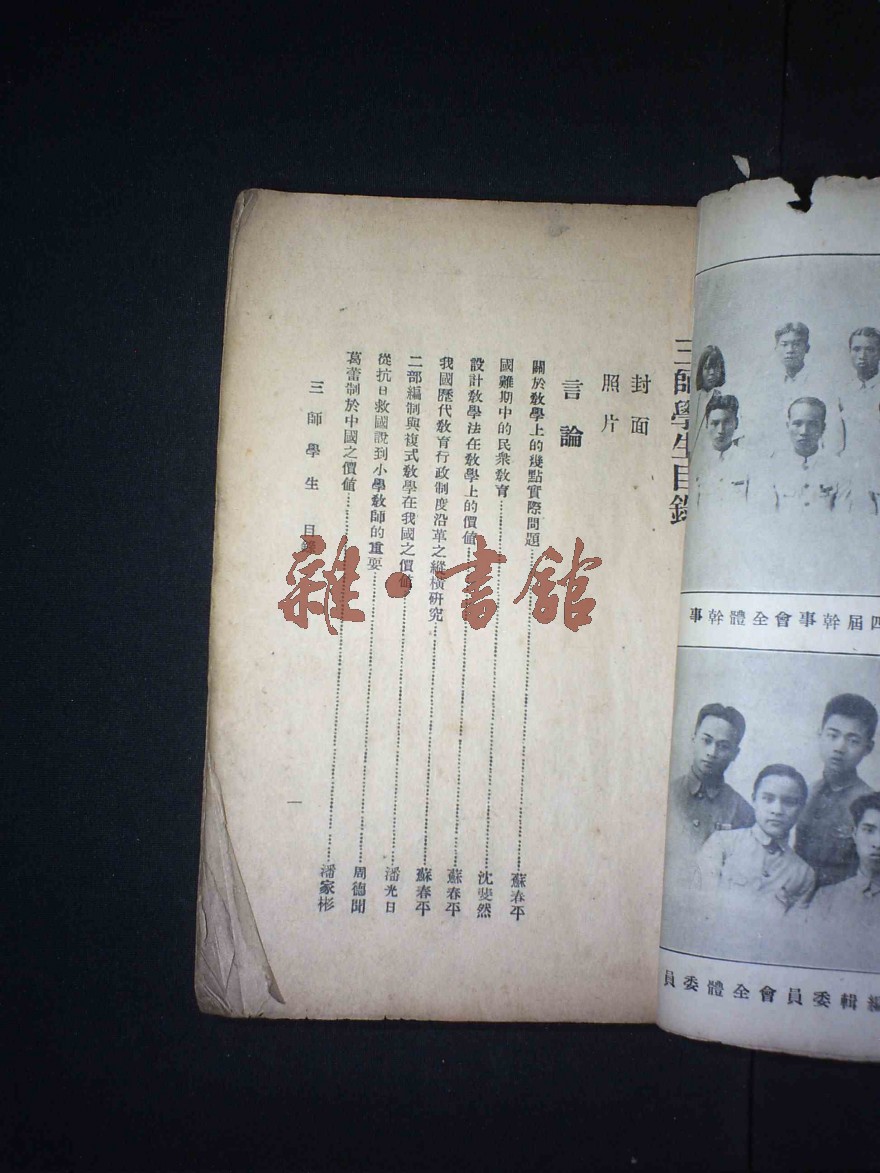 四屆幹事會全體幹事
編輯委員會全體委員
三師學生目錄
封面
照片
言論
關於教學上的幾點實際問題……蘇春平
國難期中的民衆教育……沈斐然
設計教學法在教學上的價値……蘇春平
我國歷代教育行政制度沿革之縱橫研究……蘇春平
二部編制與複式教學在我國之價値……潘光日
從抗日救國說到小學教師的重要……周德聞
葛蕾制於中國之價値……潘家彬
三師學生 目錄
一
雜·書館